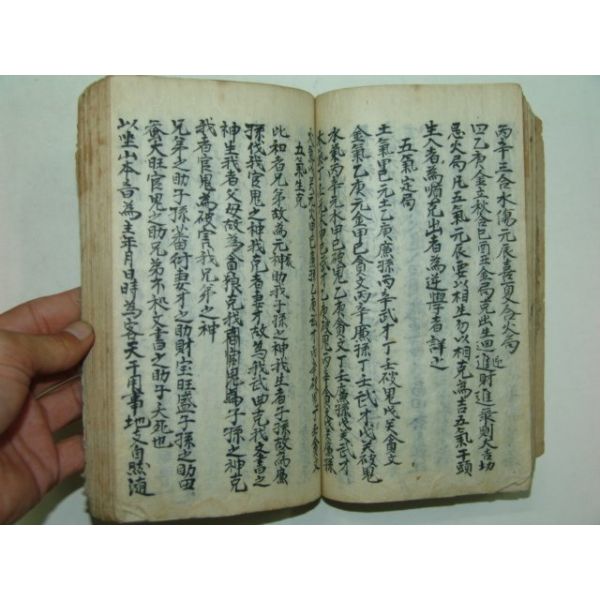 丙辛三合水傷元辰喜百又合火局
四乙庚金立秋合巳酉丑金局克出生迴進財進最則大吉切
忌火局凡五氣元辰要以相生勿以相克為吉五氣干頭
生入者為順克出者為逆學者詳之
五氣定局
土氣甲己元土乙庚廉孫丙辛武才丁壬破鬼戊癸貪文
金氣乙庚元金甲己貪文丙辛廉孫丁壬武才戊癸破鬼
水氣丙辛元水甲己破鬼乙庚貪文丁壬廉孫戊癸武才
五氣生克
比和者兄弟故為元神助我子孫之神我生者子孫故為廉
孫伐我官鬼之神我克者妻才故為我武曲克我文書之
神生我者父母故為貪狼克我子孫之神克
我者官鬼為破害我兄弟之神
兄弟之助子孫蕃衍妻才之助財宝旺盛子孫之助田
蚕大旺官鬼之助兄弟不和文書之助子夭死也
以坐山本音為主年月日時為客天干用事地支自然隨